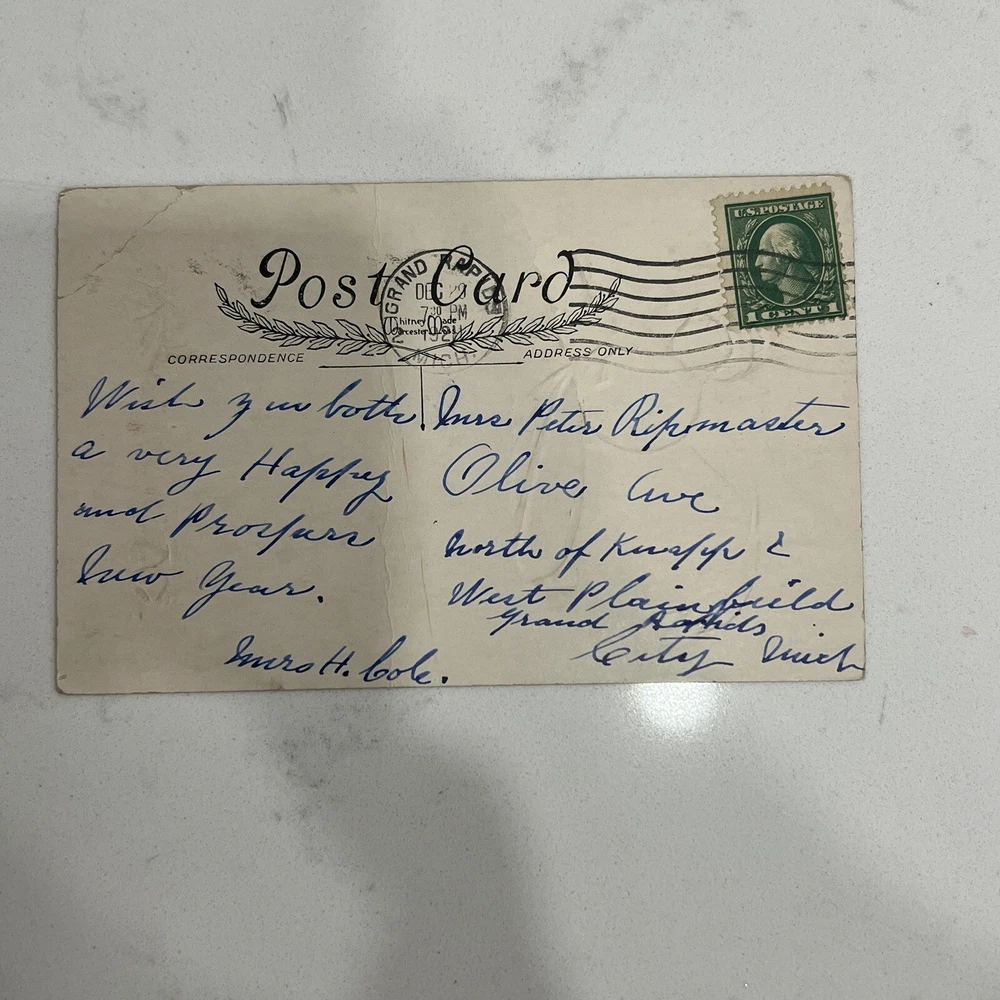 U.S. POSTAGE
1 CENT 1
Post Card
GRAND RAPIDS
DEC 29
7 30 PM
192
MICH.
Whitney Made
Worcester, Mass.
CORRESPONDENCE
ADDRESS ONLY
Wish you both
a very Happy
and Prospurs
New Year.
Mrs H. Cole.
Mrs Peter Ripmaster
Olive Ave
North of Knapp &
West Plainfield
Grand Rapids
City Mich